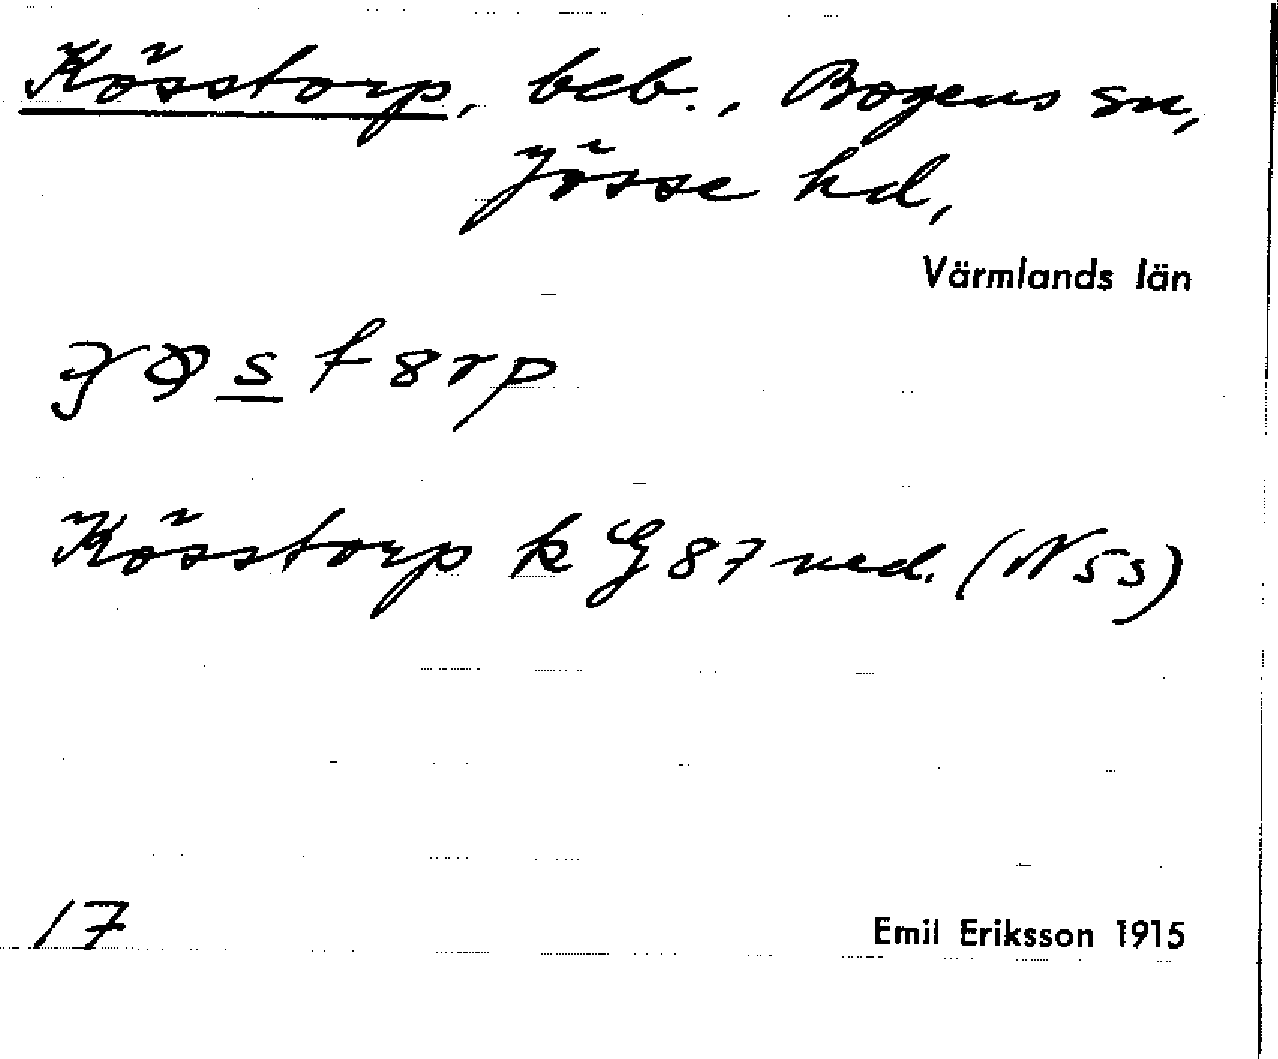 Kösstorp, beb., Bogens sn,
Jösse hd,
Värmlands län
Kösstorp k G 87 ned. (N 5 s)
17
Emil Eriksson 1915